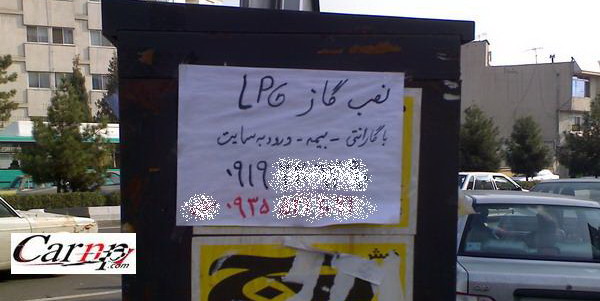 نصب گاز LPG
با گارانتی - بیمه - ورود به سایت
۰۹۱۹
۰۹۳۵
Carnp.com